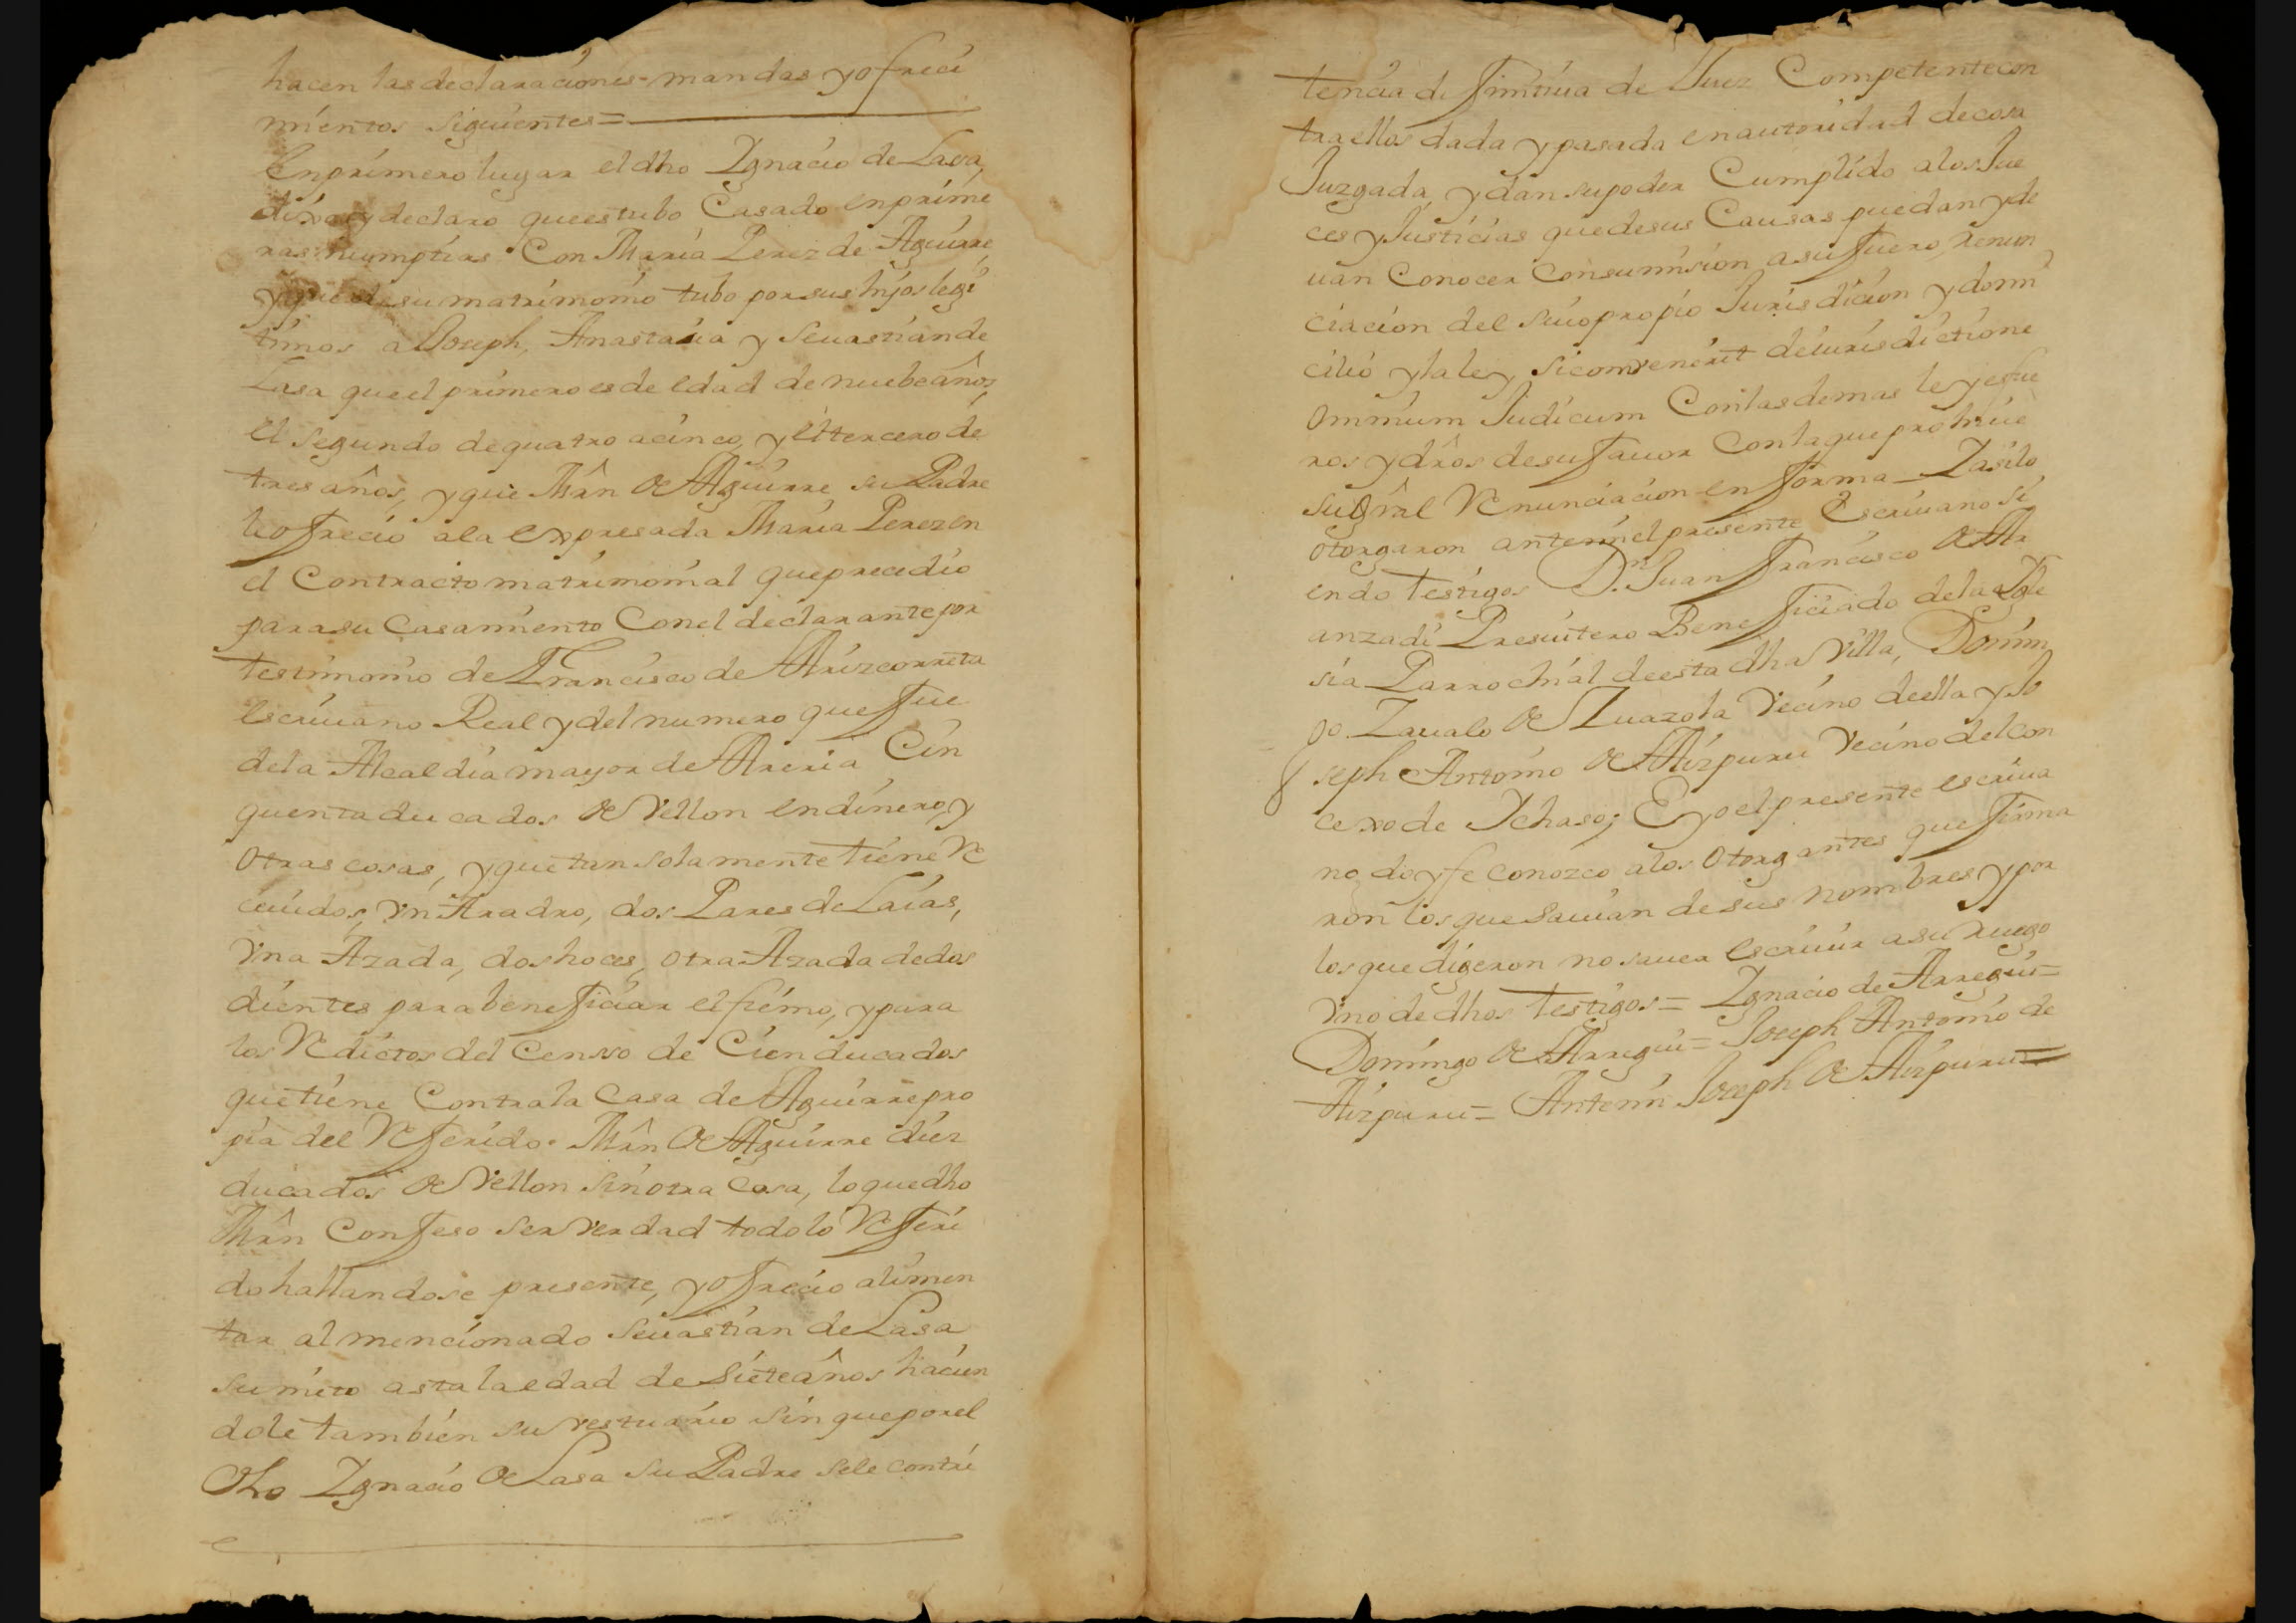 hacen las declaraciones mandas y ofreci
mientos siguientes =
En primero lugar el dho Ygnacio de Lasa,
dixo y declaro que estubo Casado en prime
ras numptias Con Maria Perez de Aguirre,
y que de su matrimonio tubo por sus hijos legi
timos a Joseph, Anastasia y Seuastian de
Lasa que el primero es de edad de nuebe años,
el segundo de quatro a cinco, y el tercero de
tres años, y que Mrn de Aguirre su Padre
le ofrecio a la expresada Maria Perez en
el Contracto matrimonial que precedio
para su Casamiento Con el declarante por
testimonio de Francisco de Arizcorreta
escriuano Real y del numero que fue
de la Alcaldia mayor de Areria Cin
quenta ducados de Vellon en dinero, y
otras cosas, y que tan solamente tiene Re
ceuidos, Vn Aradro, dos Pares de Laias,
Vna Azada, dos hoces, otra Azada de dos
dientes para beneficiar el fiemo, y para
los Redictos del Censso de Cien ducados
que tiene Contra la Casa de Aguirre pro
pia del Referido Mrn de Aguirre diez
ducados de Vellon sin otra Cosa, lo que dho
Mrn Confeso ser Verdad todo lo Referi
do hallandose presente, y ofrecio alimen
tar al mencionado Seuastian de Lasa
su nieto asta la edad de Siete años hacien
dole tambien su vestuario sin que por el
dho Ygnacio de Lasa su Padre se le contri
tencia difinitiua de Juez Competente con
tra ellos dada y pasada en autoridad de cosa
Juzgada, y dan su poder Cumplido a los Jue
ces y Justicias que de sus Causas puedan y de
uan Conocer Con sumision a su fuero, Renun
ciacion del suio propio Jurisdicion y domi
cilio y la ley si convenerit de iurisdictione
omnium Judicum Con las demas leyes fue
ros y dros de su fauor Con la que prohiue
su Gral Renunciacion en forma Y asi lo
otorgaron ante mi el presente Escriuano si
endo testigos Dn. Juan Francisco de Ar
anzadi Presuitero Beneficiado de la Ygle
sia Parrochial de esta dha Villa, Domin
go Zaualo de Zuazola Vecino de ella y Jo
seph Antonio de Aizpuru Vecino del Con
cexo de Ychaso; E yo el presente escriua
no doy fe conozco a los Otorgantes que firma
ron los que sauian de sus nombres y por
los que digeron no sauer escriuir a su ruego
Vno de dhos testigos = Ygnacio de Arregui =
Domingo de Arregui = Joseph Antonio de
Aizpuru = Antemi Joseph de Aizpuru =